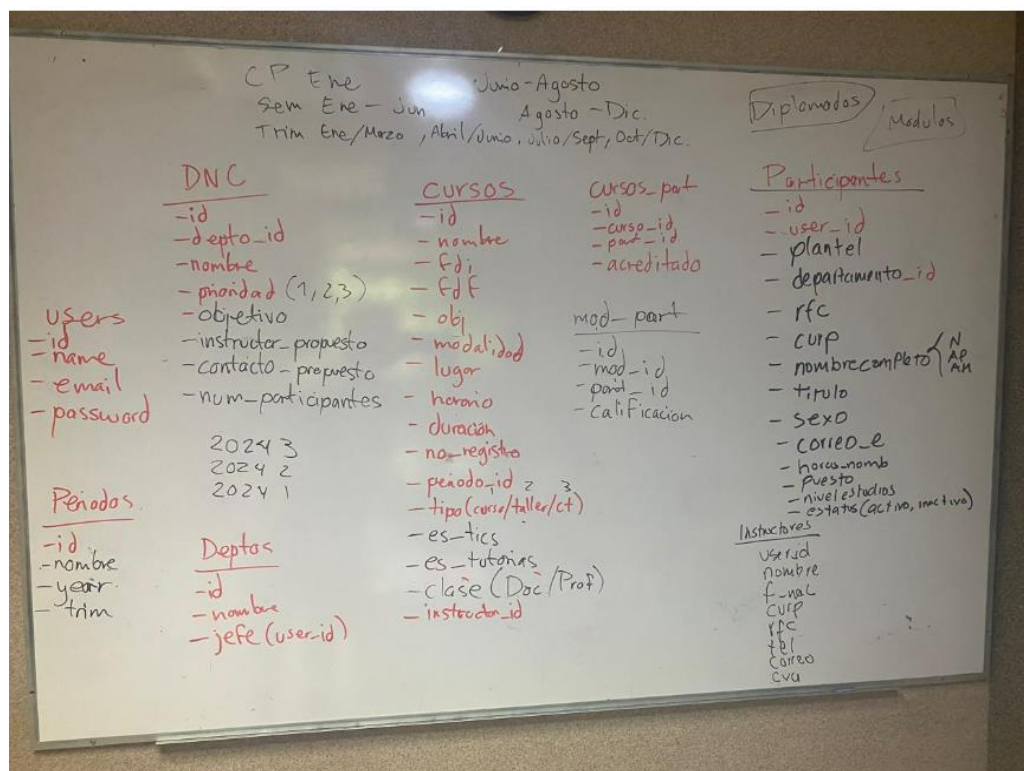 CP Ene Junio-Agosto
Sem Ene - Jun Agosto - Dic.
Trim Ene/Marzo, Abril/Junio, Julio/Sept, Oct/Dic.
Diplomados
Modulos
DNC
-id
-depto_id
-nombre
-prioridad (1,2,3)
-objetivo
-instructor_propuesto
-contacto_propuesto
-num_participantes
2024 3
2024 2
2024 1
users
-id
-name
-email
-password
Periodos
-id
-nombre
-year
-trim
Deptos
-id
-nombre
-jefe (user_id)
cursos
-id
-nombre
-fdi
-fdf
-obj
-modalidad
-lugar
-horario
-duración
-no_registro
-periodo_id
1 2 3
-tipo (curso/taller/ct)
-es_tics
-es_tutorias
-clase (Doc/Prof)
-instructor_id
cursos_part
-id
-curso_id
-part_id
-acreditado
mod_part
-id
-mod_id
-part_id
-calificacion
Participantes
-id
-user_id
-plantel
-departamento_id
-rfc
-curp
-nombrecompleto N AP AM
-titulo
-sexo
-correo_e
-horas_nomb
-puesto
-nivel estudios
-estatus (activo, inactivo)
Instructores
user_id
nombre
f_nac
curp
rfc
tel
correo
cvu